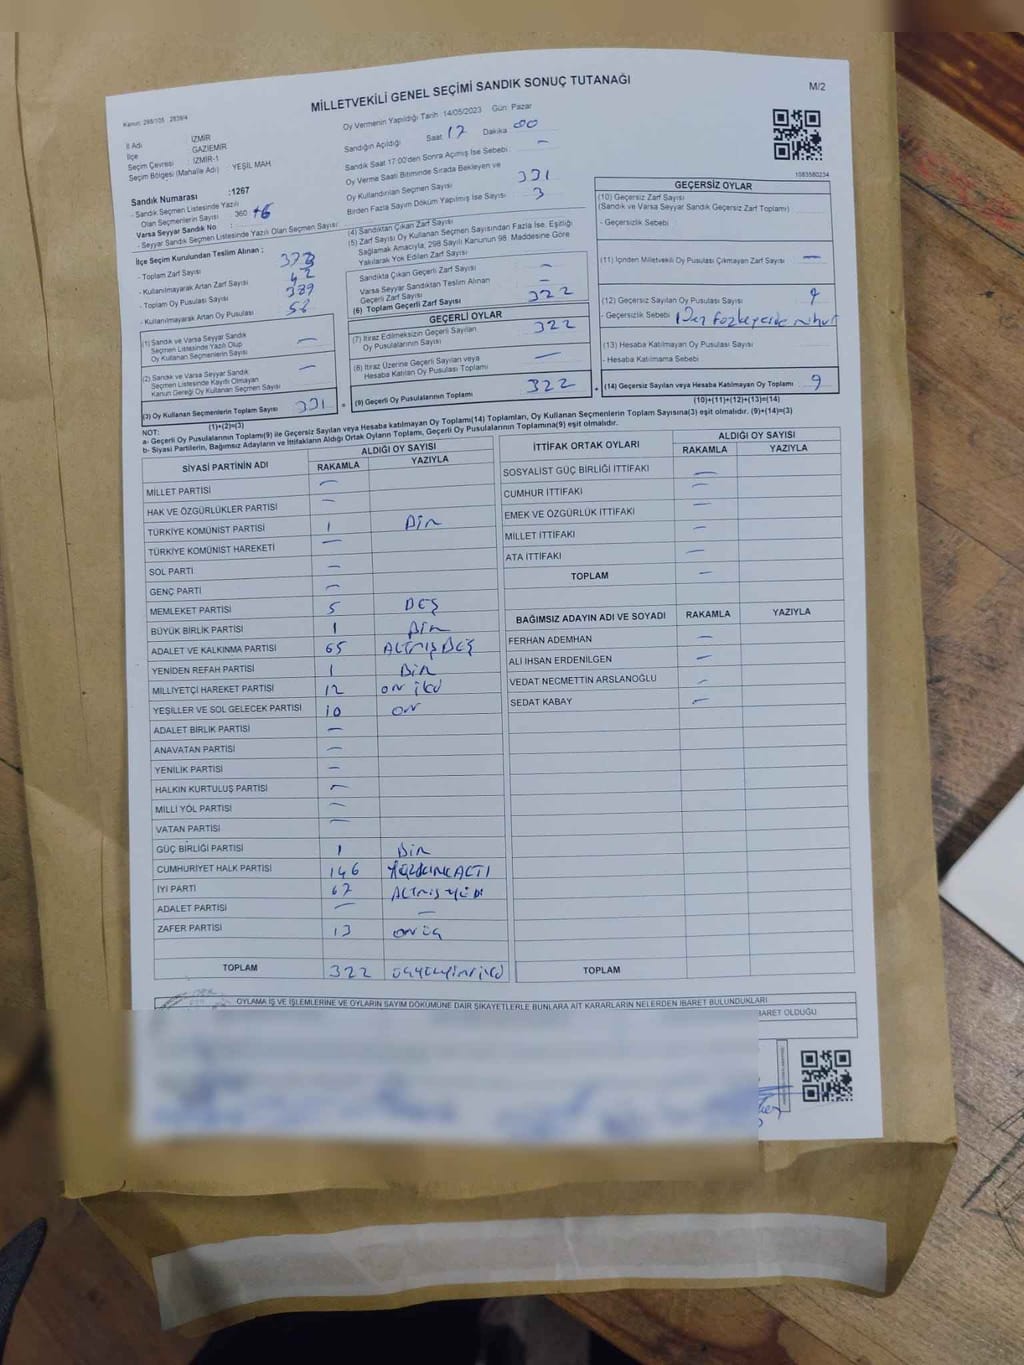 MİLLETVEKİLİ GENEL SEÇİMİ SANDIK SONUÇ TUTANAĞI
M/2
Oy Vermenin Yapıldığı Tarih :14/05/2023 Gün: Pazar
İl Adı : İZMİR
İlçe : GAZİEMİR
Seçim Çevresi : İZMİR-1
Seçim Bölgesi (Mahalle Adı) : YEŞİL MAH.
Sandığın Açıldığı Saat 17 Dakika 00
Sandık Saat 17.00'den Sonra Açılmış İse Sebebi : —
Oy Verme Saati Bitiminde Sırada Bekleyen ve
Oy Kullandırılan Seçmen Sayısı 331
Birden Fazla Sayım Döküm Yapılmış İse Sayısı : 3
1083580234
Sandık Numarası :1267
- Sandık Seçmen Listesinde Yazılı
Olan Seçmenlerin Sayısı : 360 +6
Varsa Seyyar Sandık No :
- Seyyar Sandık Seçmen Listesinde Yazılı Olan Seçmen Sayısı:
İlçe Seçim Kurulundan Teslim Alınan ;
- Toplam Zarf Sayısı
- Kullanılmayarak Artan Zarf Sayısı 42
- Toplam Oy Pusulası Sayısı 389
- Kullanılmayarak Artan Oy Pusulası 58
(1) Sandık ve Varsa Seyyar Sandık
Seçmen Listesinde Yazılı Olup
Oy Kullanan Seçmenlerin Sayısı —
(2) Sandık ve Varsa Seyyar Sandık
Seçmen Listesinde Kayıtlı Olmayan
Kanun Gereği Oy Kullanan Seçmen Sayısı —
(3) Oy Kullanan Seçmenlerin Toplam Sayısı 331
(1)+(2)=(3)
(4) Sandıktan Çıkan Zarf Sayısı
(5) Zarf Sayısı Oy Kullanan Seçmen Sayısından Fazla İse, Eşitliği
Sağlamak Amacıyla, 298 Sayılı Kanunun 98. Maddesine Göre
Yakılarak Yok Edilen Zarf Sayısı
Sandıkta Çıkan Geçerli Zarf Sayısı —
Varsa Seyyar Sandıktan Teslim Alınan
Geçerli Zarf Sayısı —
(6) Toplam Geçerli Zarf Sayısı 322
GEÇERLİ OYLAR
(7) İtiraz Edilmeksizin Geçerli Sayılan
Oy Pusulalarının Sayısı 322
(8) İtiraz Üzerine Geçerli Sayılan veya
Hesaba Katılan Oy Pusulası Toplamı —
(9) Geçerli Oy Pusulalarının Toplamı 322
GEÇERSİZ OYLAR
(10) Geçersiz Zarf Sayısı
(Sandık ve Varsa Seyyar Sandık Geçersiz Zarf Toplamı)
- Geçersizlik Sebebi
(11) İçinden Milletvekili Oy Pusulası Çıkmayan Zarf Sayısı —
(12) Geçersiz Sayılan Oy Pusulası Sayısı 9
- Geçersizlik Sebebi
(13) Hesaba Katılmayan Oy Pusulası Sayısı
- Hesaba Katılmama Sebebi
(14) Geçersiz Sayılan veya Hesaba Katılmayan Oy Toplamı 9
(10)+(11)+(12)+(13)=(14)
NOT:
a- Geçerli Oy Pusulalarının Toplamı(9) ile Geçersiz Sayılan veya Hesaba Katılmayan Oy Toplamı(14) Toplamları, Oy Kullanan Seçmenlerin Toplam Sayısına(3) eşit olmalıdır. (9)+(14)=(3)
b- Siyasi Partilerin, Bağımsız Adayların ve İttifakların Aldığı Ortak Oyların Toplamı, Geçerli Oy Pusulalarının Toplamına(9) eşit olmalıdır.
SİYASİ PARTİNİN ADI ALDIĞI OY SAYISI
RAKAMLA YAZIYLA
MİLLET PARTİSİ —
HAK VE ÖZGÜRLÜKLER PARTİSİ —
TÜRKİYE KOMÜNİST PARTİSİ 1 Bir
TÜRKİYE KOMÜNİST HAREKETİ —
SOL PARTİ —
GENÇ PARTİ —
MEMLEKET PARTİSİ 5 BEŞ
BÜYÜK BİRLİK PARTİSİ 1 Bir
ADALET VE KALKINMA PARTİSİ 65 ALTMIŞ BEŞ
YENİDEN REFAH PARTİSİ 1 Bir
MİLLİYETÇİ HAREKET PARTİSİ 12 on iki
YEŞİLLER VE SOL GELECEK PARTİSİ 10 on
ADALET BİRLİK PARTİSİ —
ANAVATAN PARTİSİ —
YENİLİK PARTİSİ —
HALKIN KURTULUŞ PARTİSİ —
MİLLİ YOL PARTİSİ —
VATAN PARTİSİ —
GÜÇ BİRLİĞİ PARTİSİ 1 Bir
CUMHURİYET HALK PARTİSİ 146 YÜZKIRKALTI
İYİ PARTİ 67
ADALET PARTİSİ — —
ZAFER PARTİSİ 13 on üç
TOPLAM 322 üçyüzyirmiiki
İTTİFAK ORTAK OYLARI ALDIĞI OY SAYISI
RAKAMLA YAZIYLA
SOSYALİST GÜÇ BİRLİĞİ İTTİFAKI —
CUMHUR İTTİFAKI —
EMEK VE ÖZGÜRLÜK İTTİFAKI —
MİLLET İTTİFAKI —
ATA İTTİFAKI —
TOPLAM —
BAĞIMSIZ ADAYIN ADI VE SOYADI RAKAMLA YAZIYLA
FERHAN ADEMHAN —
ALİ İHSAN ERDENİLGEN —
VEDAT NECMETTİN ARSLANOĞLU —
SEDAT KABAY —
TOPLAM
OYLAMA İŞ VE İŞLEMLERİNE VE OYLARIN SAYIM DÖKÜMÜNE DAİR ŞİKAYETLERLE BUNLARA AİT KARARLARIN NELERDEN İBARET BULUNDUKLARI
İBARET OLDUĞU